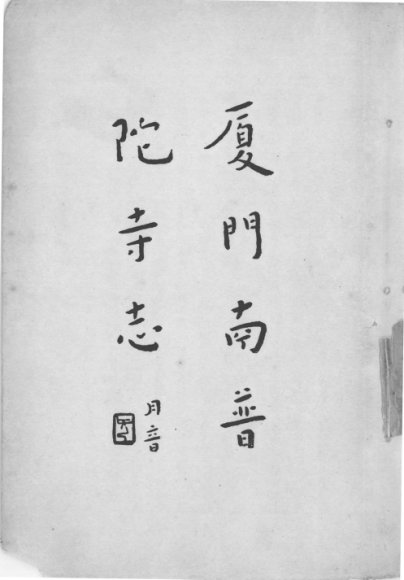 厦門南普
陀寺志
月音